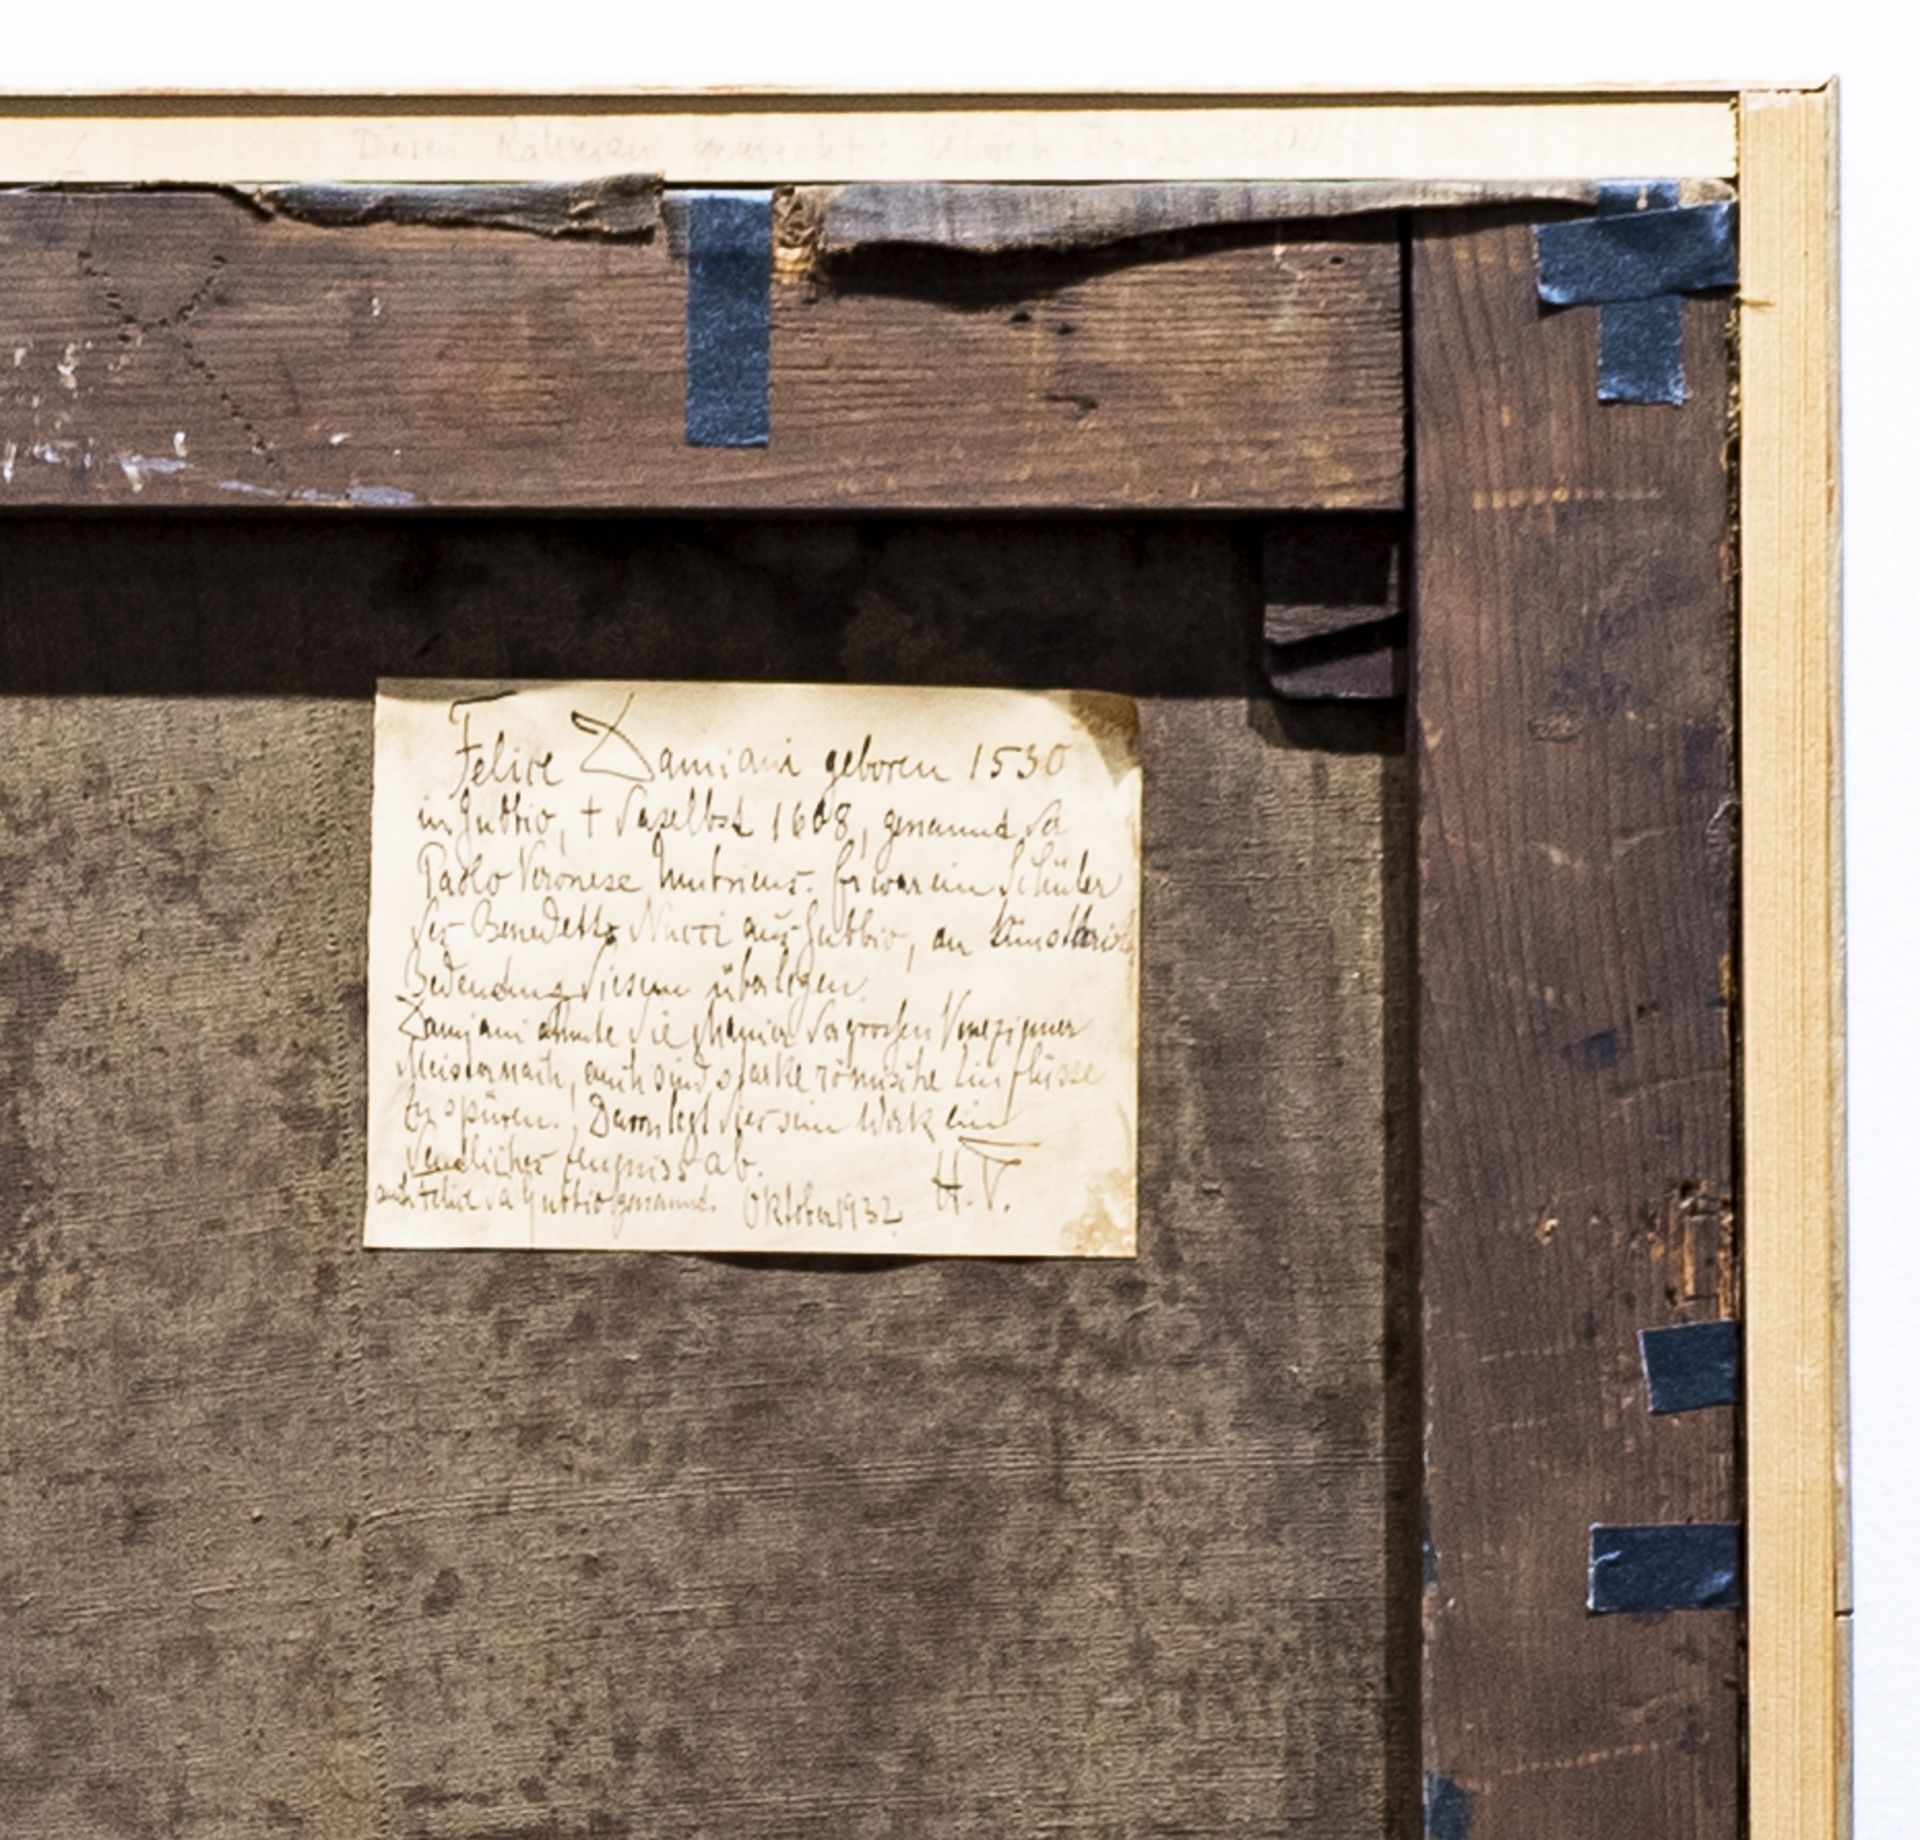 Diesen Rahmen gemacht: Ulrich
Felice Damiani geboren 1530
in Gubbio, † daselbst 1608, genannt da
Paolo Veronese Umbriens. Er war ein Schüler
des Benedetto Nucci aus Gubbio, an künstlerisch
Bedeutung diesem überlegen.
Damiani ahmte die Manier der grossen Venezianer
Meister nach, auch sind starke römische Einflüsse
zu spüren. Davon legt dies sein Werk ein
deutliches Zeugniss ab.
auch Felice da Gubbio genannt. Oktober 1932 H. T.